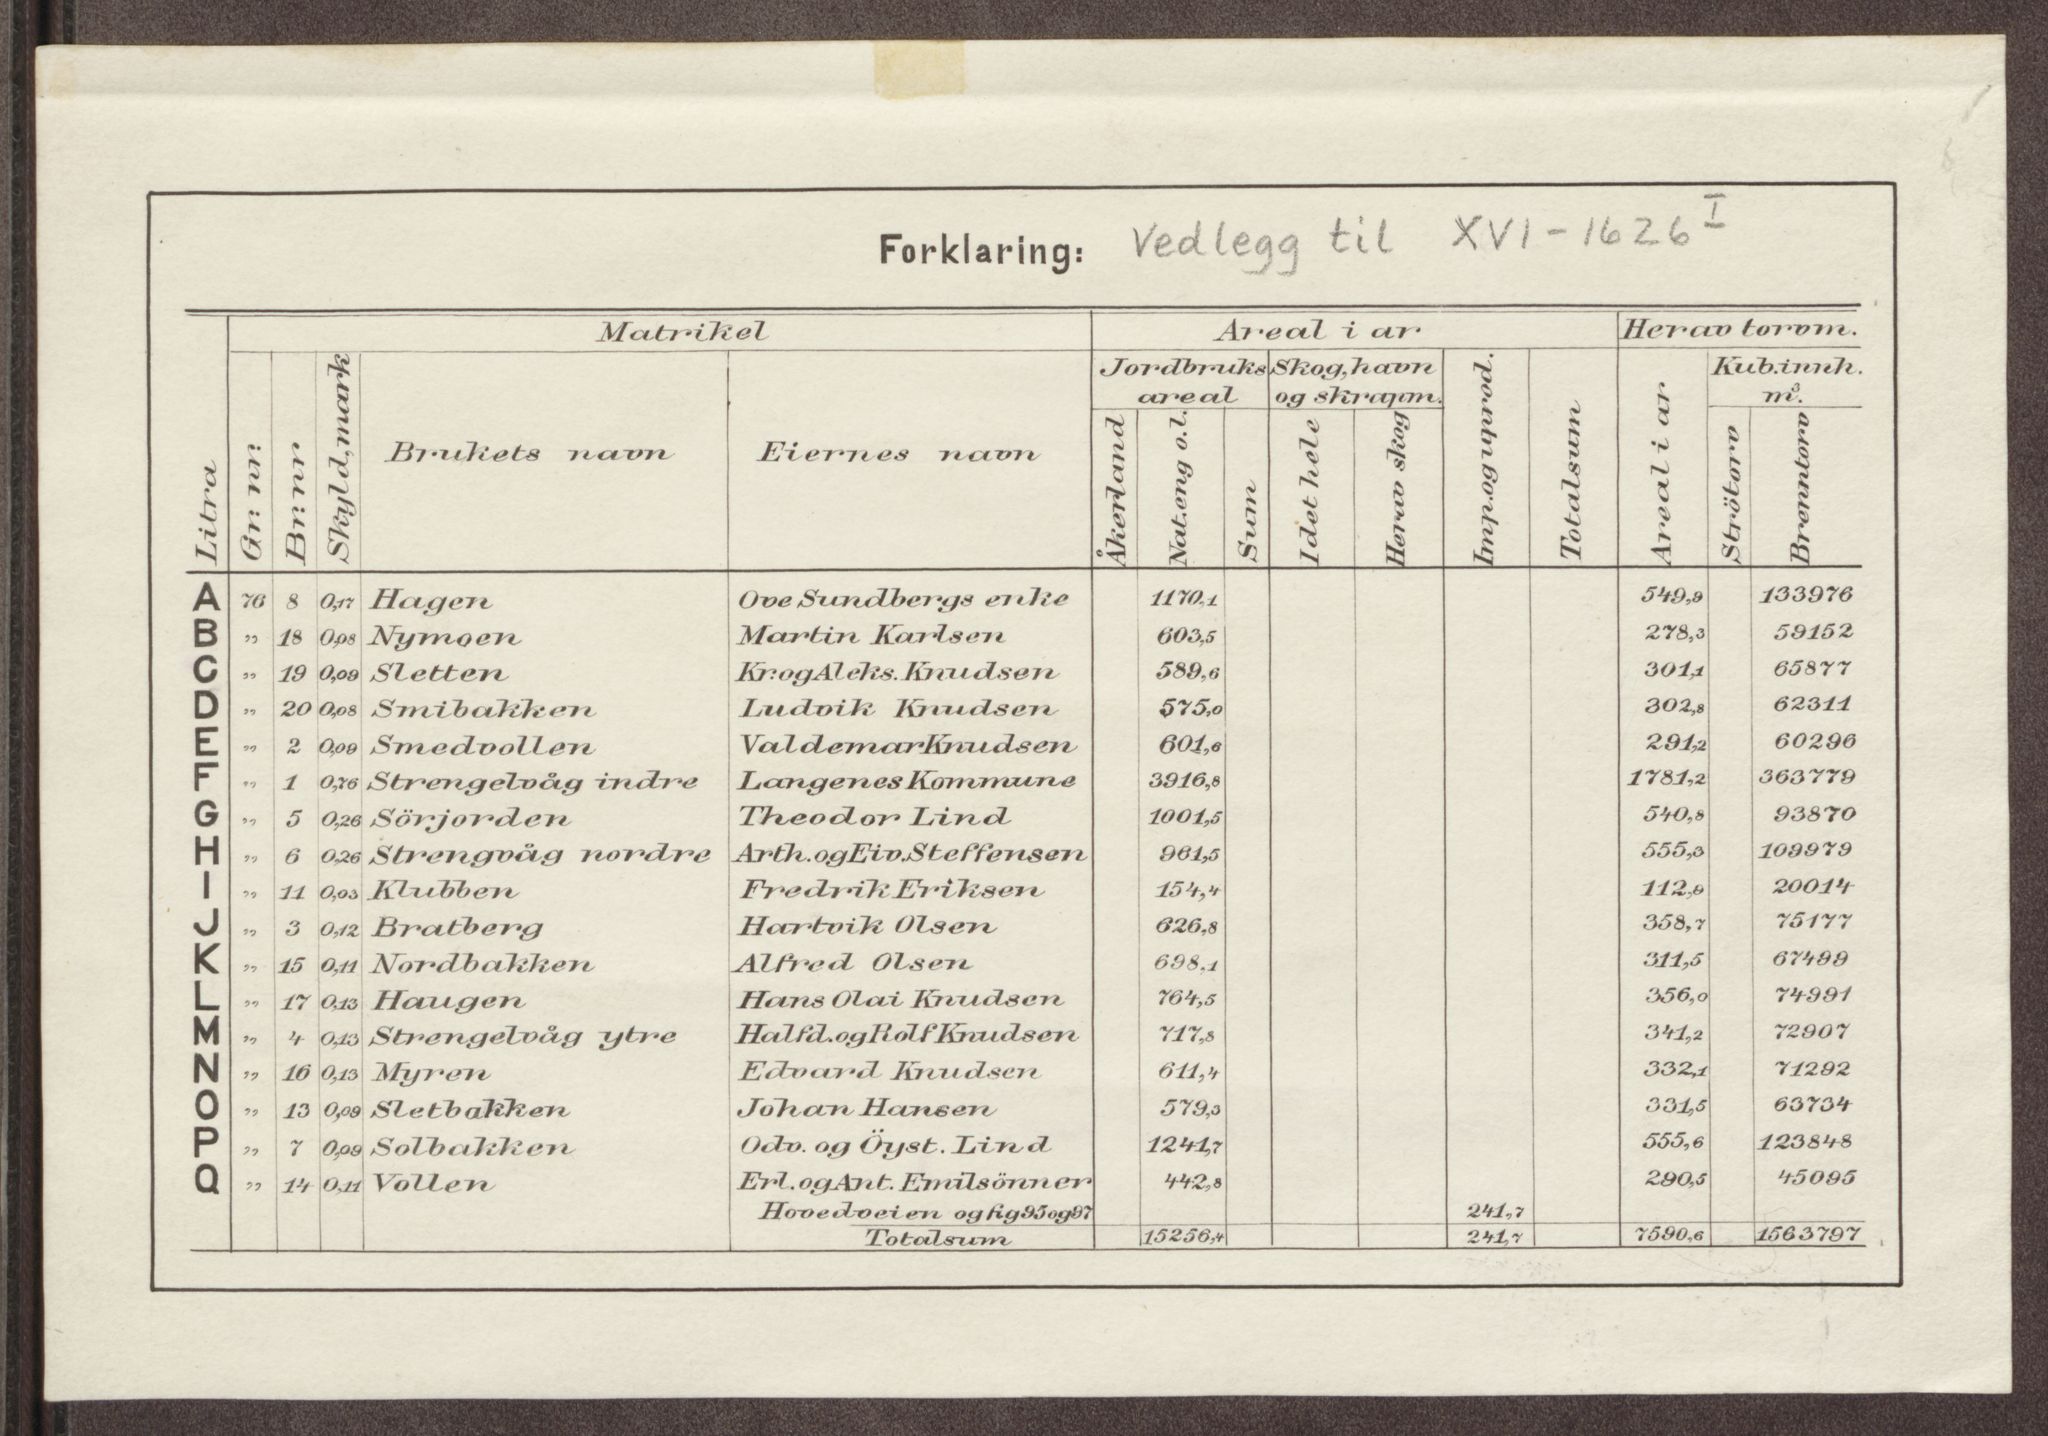 Forklaring: Vedlegg til XVI-1626 I
Matrikel Areal i ar Herav torvm.
Litra Gr: nr: Br: nr Skyld, mark Brukets navn Eiernes navn
Jordbruks areal Skog, havn og skrapm. Imp. og uprod. Totalsum Areal i ar Kub. innh. m³.
Åkerland Nat. eng o.l. Sum I det hele Herav skog Strötorv Brenntorv
A 76 8 0,17 Hagen Ove Sundbergs enke 1170,1 549,9 133976
B " 18 0,08 Nymoen Martin Karlsen 603,5 278,3 59152
C " 19 0,09 Sletten Kr. og Aleks. Knudsen 589,6 301,1 65877
D " 20 0,08 Smibakken Ludvik Knudsen 575,0 302,8 62311
E " 2 0,09 Smedvollen Valdemar Knudsen 601,6 291,2 60296
F " 1 0,76 Strengelvåg indre Langenes Kommune 3916,8 1781,2 363779
G " 5 0,26 Sörjorden Theodor Lind 1001,5 540,8 93870
H " 6 0,26 Strengvåg nordre Arth. og Eiv. Steffensen 961,5 555,3 109979
I " 11 0,03 Klubben Fredrik Eriksen 154,4 112,9 20014
J " 3 0,12 Bratberg Hartvik Olsen 626,8 358,7 75177
K " 15 0,11 Nordbakken Alfred Olsen 698,1 311,5 67499
L " 17 0,13 Haugen Hans Olai Knudsen 764,5 356,0 74991
M " 4 0,13 Strengelvåg ytre Halfd. og Rolf Knudsen 717,8 341,2 72907
N " 16 0,13 Myren Edvard Knudsen 611,4 332,1 71292
O " 13 0,09 Sletbakken Johan Hansen 579,3 331,5 63734
P " 7 0,09 Solbakken Odv. og Öyst. Lind 1241,7 555,6 123848
Q " 14 0,11 Vollen Erl. og Ant. Emilsönner 442,8 290,5 45095
Hovedveien og fig 95 og 97 241,7
Totalsum 15256,4 241,7 7590,6 1563797